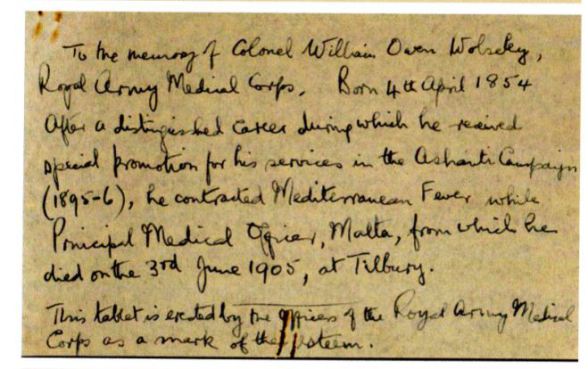 To the memory of Colonel William Owen Wolseley,
Royal Army Medical Corps. Born 4th April 1854
After a distinguished career during which he received
special promotion for his services in the Ashanti Campaign
(1895-6), he contracted Mediterranean Fever while
Principal Medical Officer, Malta, from which he
died on the 3rd June 1905, at Tilbury.
This tablet is erected by the Officers of the Royal Army Medical
Corps as a mark of their esteem.